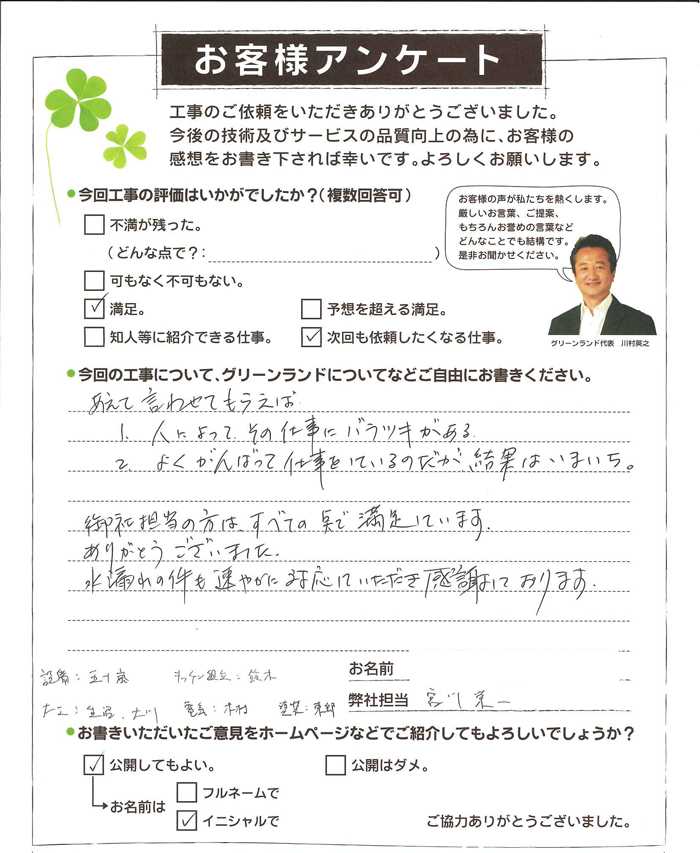 お客様アンケート
工事のご依頼をいただきありがとうございました。
今後の技術及びサービスの品質向上の為に、お客様の
感想をお書き下されば幸いです。よろしくお願いします。
●今回工事の評価はいかがでしたか?(複数回答可)
不満が残った。
(どんな点で?: )
可もなく不可もない。
満足。
予想を超える満足。
知人等に紹介できる仕事。
次回も依頼したくなる仕事。
お客様の声が私たちを熱くします。
厳しいお言葉、ご提案、
もちろんお誉めの言葉など
どんなことでも結構です。
是非お聞かせください。
グリーンランド代表 川村英之
●今回の工事について、グリーンランドについてなどご自由にお書きください。
あえて言わせてもらえば
1. 人によって その仕事にバラツキがある
2. よくがんばって仕事をているのだが 結果はいまいち。
御社担当の方は すべての点で 満足しています.
ありがとう ございました.
水漏れの件も 速やかに 対応していただき 感謝しております.
設備:五十嵐 キッチン組立:鈴木
大工: 電気:木村 塗装:
お名前
弊社担当 宮川 栄一
●お書きいただいたご意見をホームページなどでご紹介してもよろしいでしょうか?
公開してもよい。
公開はダメ。
お名前は
フルネームで
イニシャルで
ご協力ありがとうございました。